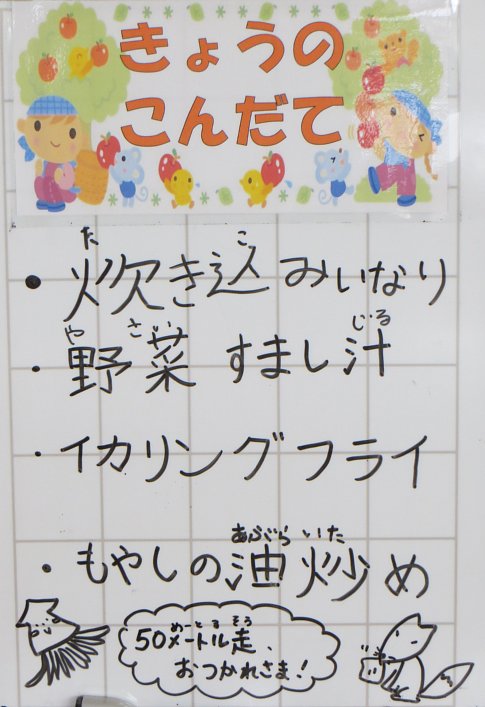 きょうの
こんだて
た こ
・炊き込みいなり
や さい じる
・野菜すまし汁
・イカリングフライ
あぶら いた
・もやしの油炒め
めーとる そう
50メートル走、
おつかれさま!